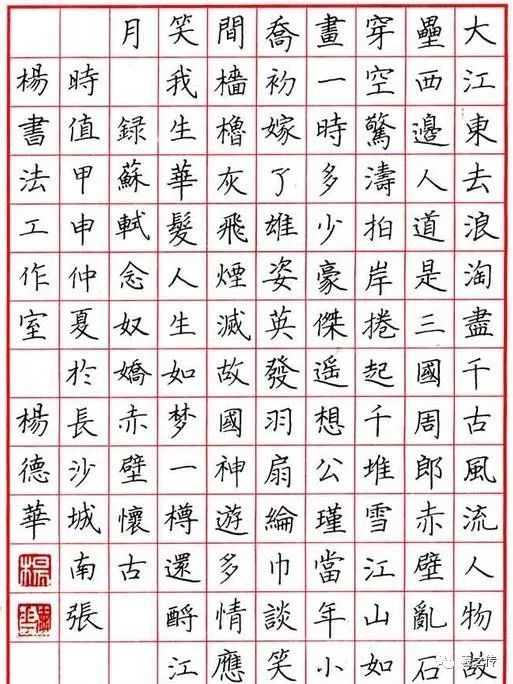 大江東去浪淘盡千古風流人物故
壘西邊人道是三國周郎赤壁亂石
穿空驚濤拍岸捲起千堆雪江山如
畫一時多少豪傑遥想公瑾當年小
喬初嫁了雄姿英發羽扇綸巾談笑
間檣櫓灰飛煙滅故國神遊多情應
笑我生華髮人生如梦一樽還酹江
月 録蘇軾念奴嬌赤壁懷古
時值甲申仲夏於長沙城南張
楊書法工作室 楊德華